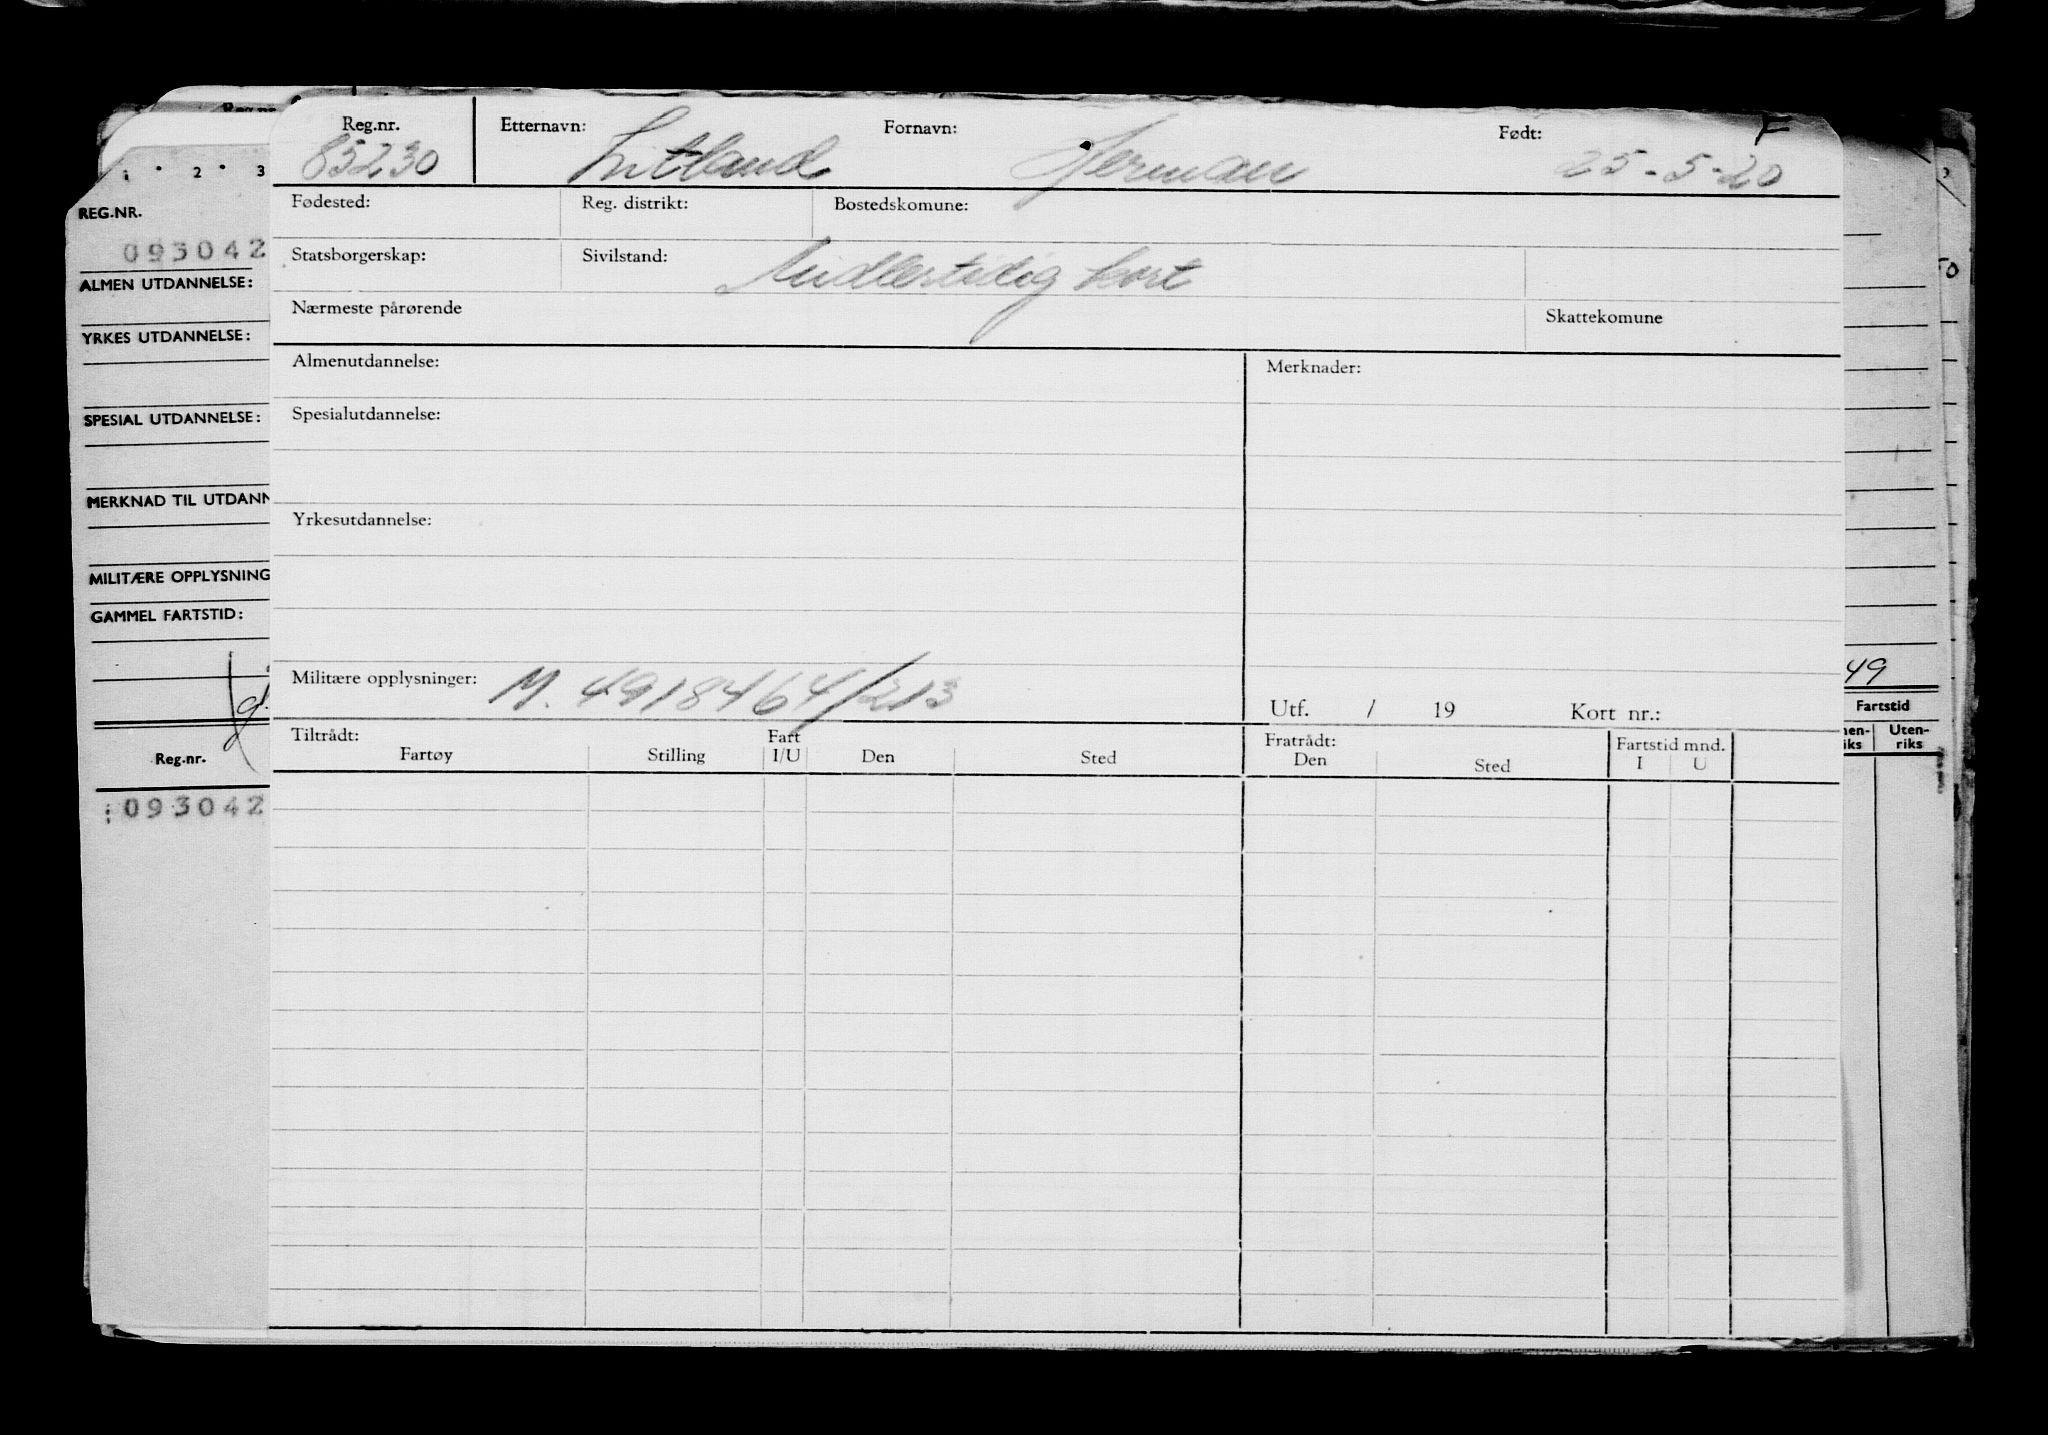 Reg.nr.
Etternavn:
Fornavn:
Født:
F
85230
Litland
Herman
25-5-20
1 · 2 · 3
REG.NR.
093042
Fødested:
Reg. distrikt:
Bostedskomune:
Statsborgerskap:
Sivilstand:
Midlertidig kort
50
ALMEN UTDANNELSE:
Nærmeste pårørende
Skattekomune
YRKES UTDANNELSE:
Almenutdannelse:
Merknader:
SPESIAL UTDANNELSE:
Spesialutdannelse:
MERKNAD TIL UTDANN
Yrkesutdannelse:
MILITÆRE OPPLYSNING
GAMMEL FARTSTID:
Militære opplysninger:
M. 4918464/213
49
Utf. / 19
Kort nr.:
Fartstid
Tiltrådt:
Fartøy
Stilling
Fart
I/U
Den
Sted
Fratrådt:
Den
Sted
Fartstid mnd.
I U
nen-
iks
Uten-
riks
Reg.nr.
093042